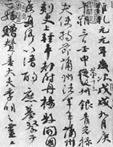 維乾元元年歲次戊戌九月庚
午朔三日壬申第十三叔銀青光祿
夫使持節蒲州諸軍事蒲州
刺史上輕車都尉丹楊縣開國
侯真卿以清酌庶羞祭于
亡姪贈贊善大夫季明之靈